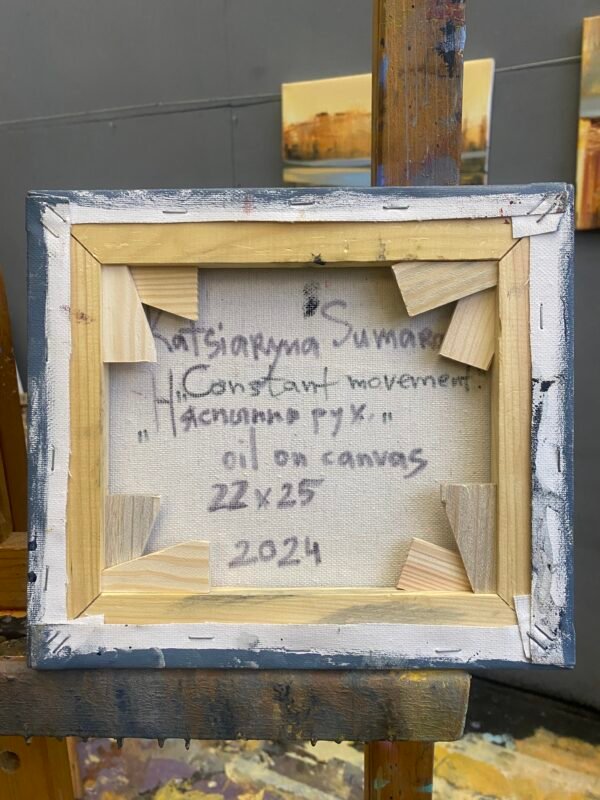 Katsiaryna Sumara
"Constant movement.
„Няспынны рух."
oil on canvas
22x25
2024